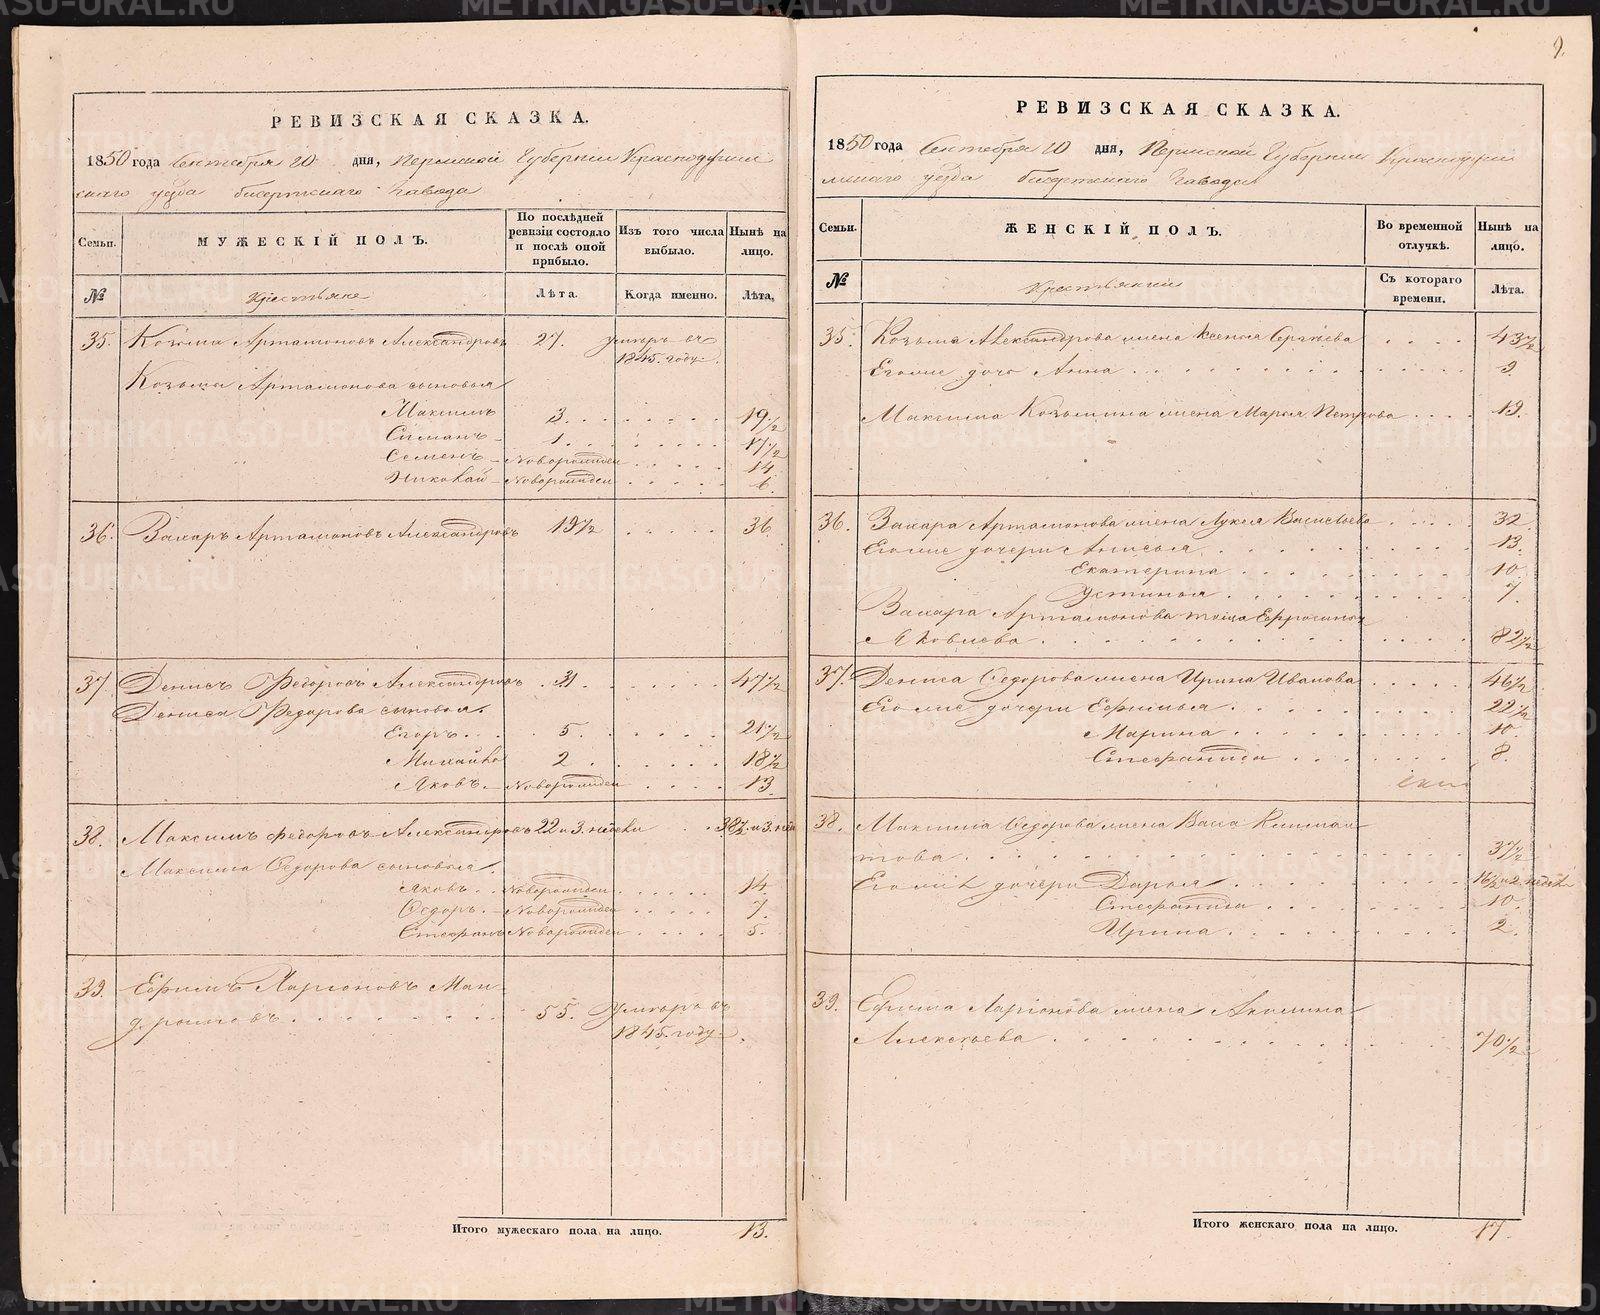 РЕВИЗСКАЯ СКАЗКА.
1850 года Сентября 20 дня, Пермской Губернии Красноуфим
скаго уѣзда бисертскаго завода
Семьи.
МУЖЕСКІЙ ПОЛЪ.
По послѣдней ревизіи состояло и послѣ оной прибыло.
Изъ того числа выбыло.
Нынѣ на лицо.
№
Крестьяне
Лѣта.
Когда именно.
Лѣта,
35. Козьма Артамоновъ Александровъ 27. умеръ въ
1845. году.
Козьмы Артамонова сыновья
Максимъ 3. 19½
Симанъ 1. 17½
Семенъ Новорожден 14
Николай Новорожден 6.
36. Захаръ Артамоновъ Александровъ 19½ 36
37. Денисъ Федоровъ Александровъ 31 47½
Дениса Федорова сыновья.
Егоръ 5. 21½
Михайло 2 18½
Яковъ Новорожден 13
38. Максимъ Федоровъ Александровъ 22 и 3. недели 38½ и 3. неде
Максима Ѳедорова сыновья.
Яковъ Новорожден 14
Ѳедоръ Новорожден 7.
Стефанъ Новорожден 5.
39. Ефимъ Ларіоновъ Ман
55. Умеръ въ
1845. году.
Итого мужескаго пола на лицо. 13.
9.
РЕВИЗСКАЯ СКАЗКА.
1850 года Сентября 20 дня, Пермской Губерніи Красноуфи
мскаго уѣзда бисертскаго завода
Семьи.
ЖЕНСКІЙ ПОЛЪ.
Во временной отлучкѣ.
Нынѣ на лицо.
№
Крестьянки
Съ котораго времени.
Лѣта.
35. Козьмы Александрова жена Ксенья Сергѣева 43½
Его же дочь Анна 9
Максима Козьмина жена Марья Петрова 19.
36. Захара Артамонова жена Лукея Васильева 32
Его же дочери Анисья 13.
Екатерина 10
Устинья 7.
Захара Артамонова теща Ефросинья
Яковлева 82½
37. Дениса Ѳедорова жена Ирина Иванова 46½
Его же дочери Ефимья 22½
Марина 10.
Стефанида 8.
38. Максима Ѳедорова жена Васа Климан
това 37½
Его же дочери Дарья 16½ и 2 недели
Стефанида 10.
Ирина 2.
39. Ефима Ларіонова жена Акилина
Алексѣева 70½
Итого женскаго пола на лицо. 17
METRIKI.GASO-URAL.RU